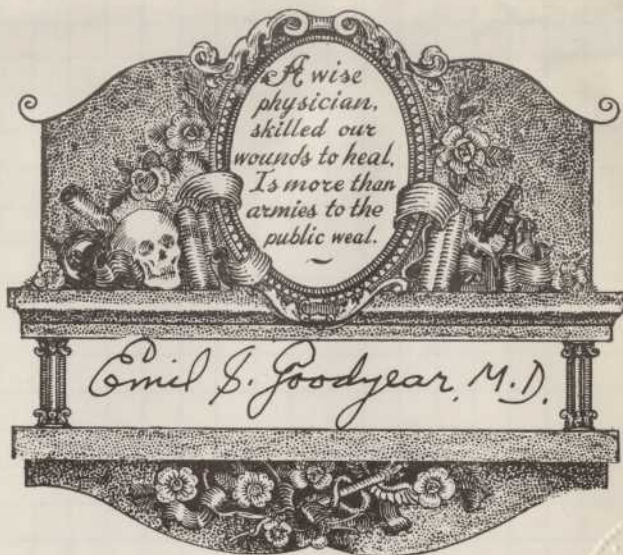 A wise
physician,
skilled our
wounds to heal,
Is more than
armies to the
public weal.
Emil S. Goodyear, M.D.